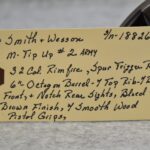 Smith + Wesson S/n-18826
M-Tip Up # 2 Army
.32 Cal. Rimfire, Spur Trigger
6" Octagon Barrel - Top Rib -
Front, + Notch Rear Sights, Blued
Brown Finish, + Smooth Wood
Pistol Grips,